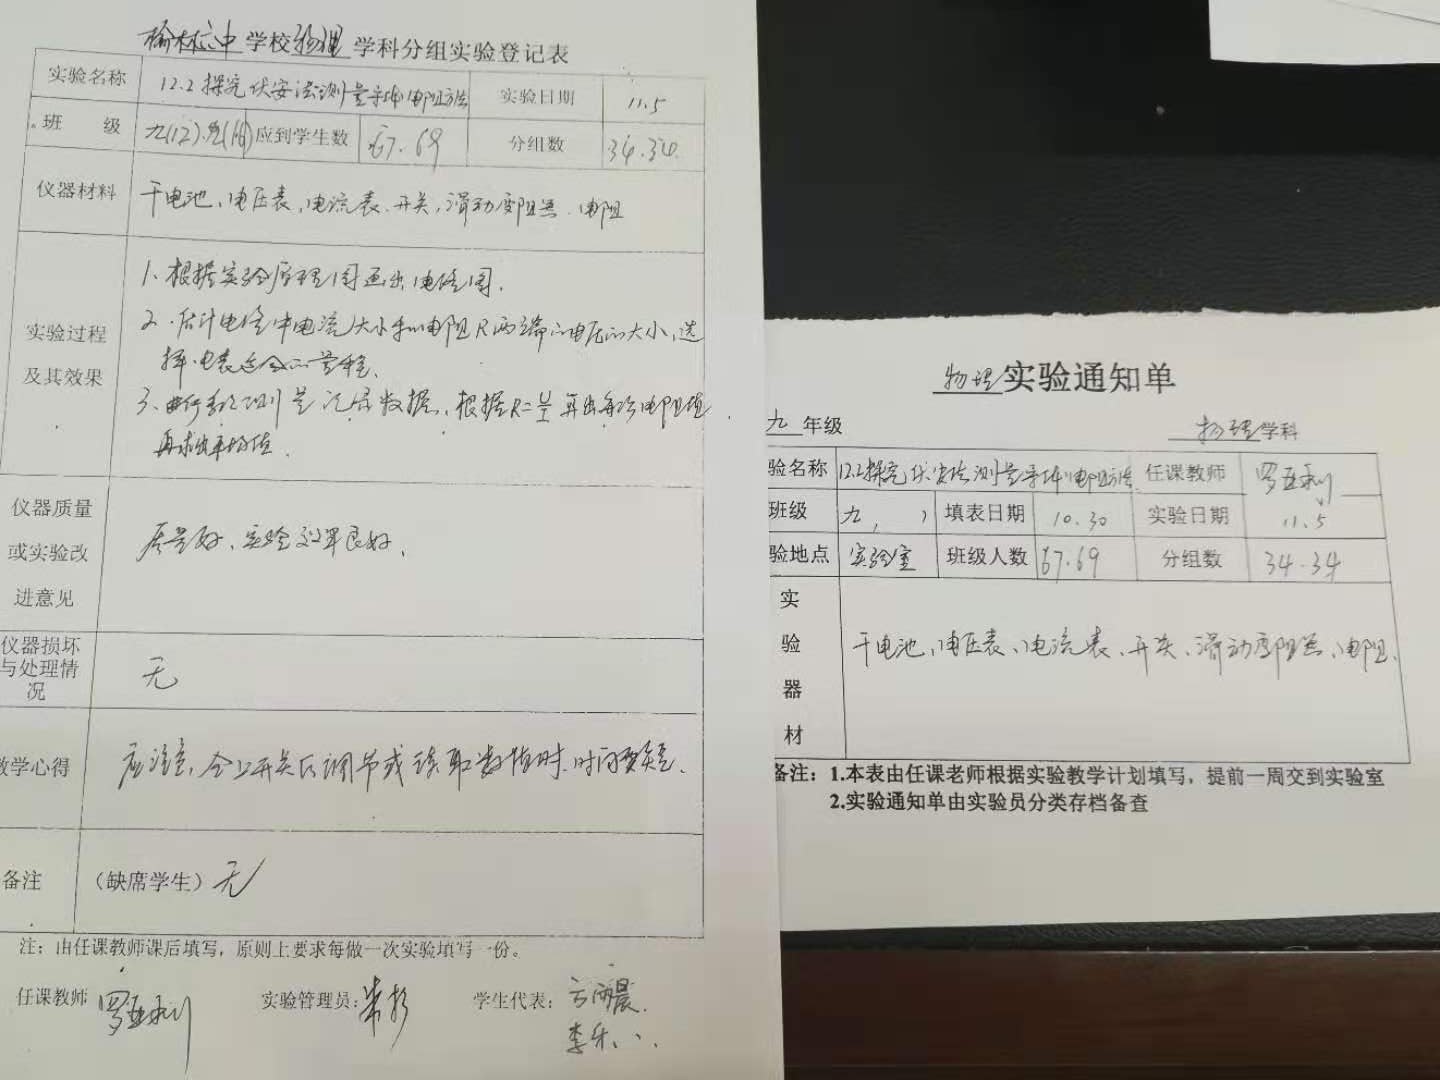 榆林六中学校物理学科分组实验登记表
实验名称 12.2探究伏安法测量导体电阻方法 实验日期 11.5
班 级 九(12).九(16) 应到学生数 67.69 分组数 34.34.
仪器材料 干电池、电压表、电流表、开关、滑动变阻器、电阻
实验过程及其效果
1、根据实验原理图画出电路图.
2、估计电路中电流大小和电阻R两端的电压的大小,选
择电表适合的量程.
3、进行多次测量记录数据,根据R=U/I算出每次电阻值
再求出平均值.
仪器质量或实验改进意见 质量好、实验效果良好.
仪器损坏与处理情况 无
教学心得 应注意,合上开关后调节或读取数据时.时间要短.
备注 (缺席学生)无
注:由任课教师课后填写,原则上要求每做一次实验填写一份。
任课教师 罗亚利 实验管理员: 学生代表:
物理实验通知单
九年级 物理学科
验名称 12.2探究伏安法测量导体电阻方法 任课教师 罗亚利
班级 九( ) 填表日期 10.30 实验日期 11.5
验地点 实验室 班级人数 67.69 分组数 34.34
实验器材 干电池、电压表、电流表、开关、滑动变阻器、电阻.
备注:1.本表由任课老师根据实验教学计划填写,提前一周交到实验室
2.实验通知单由实验员分类存档备查